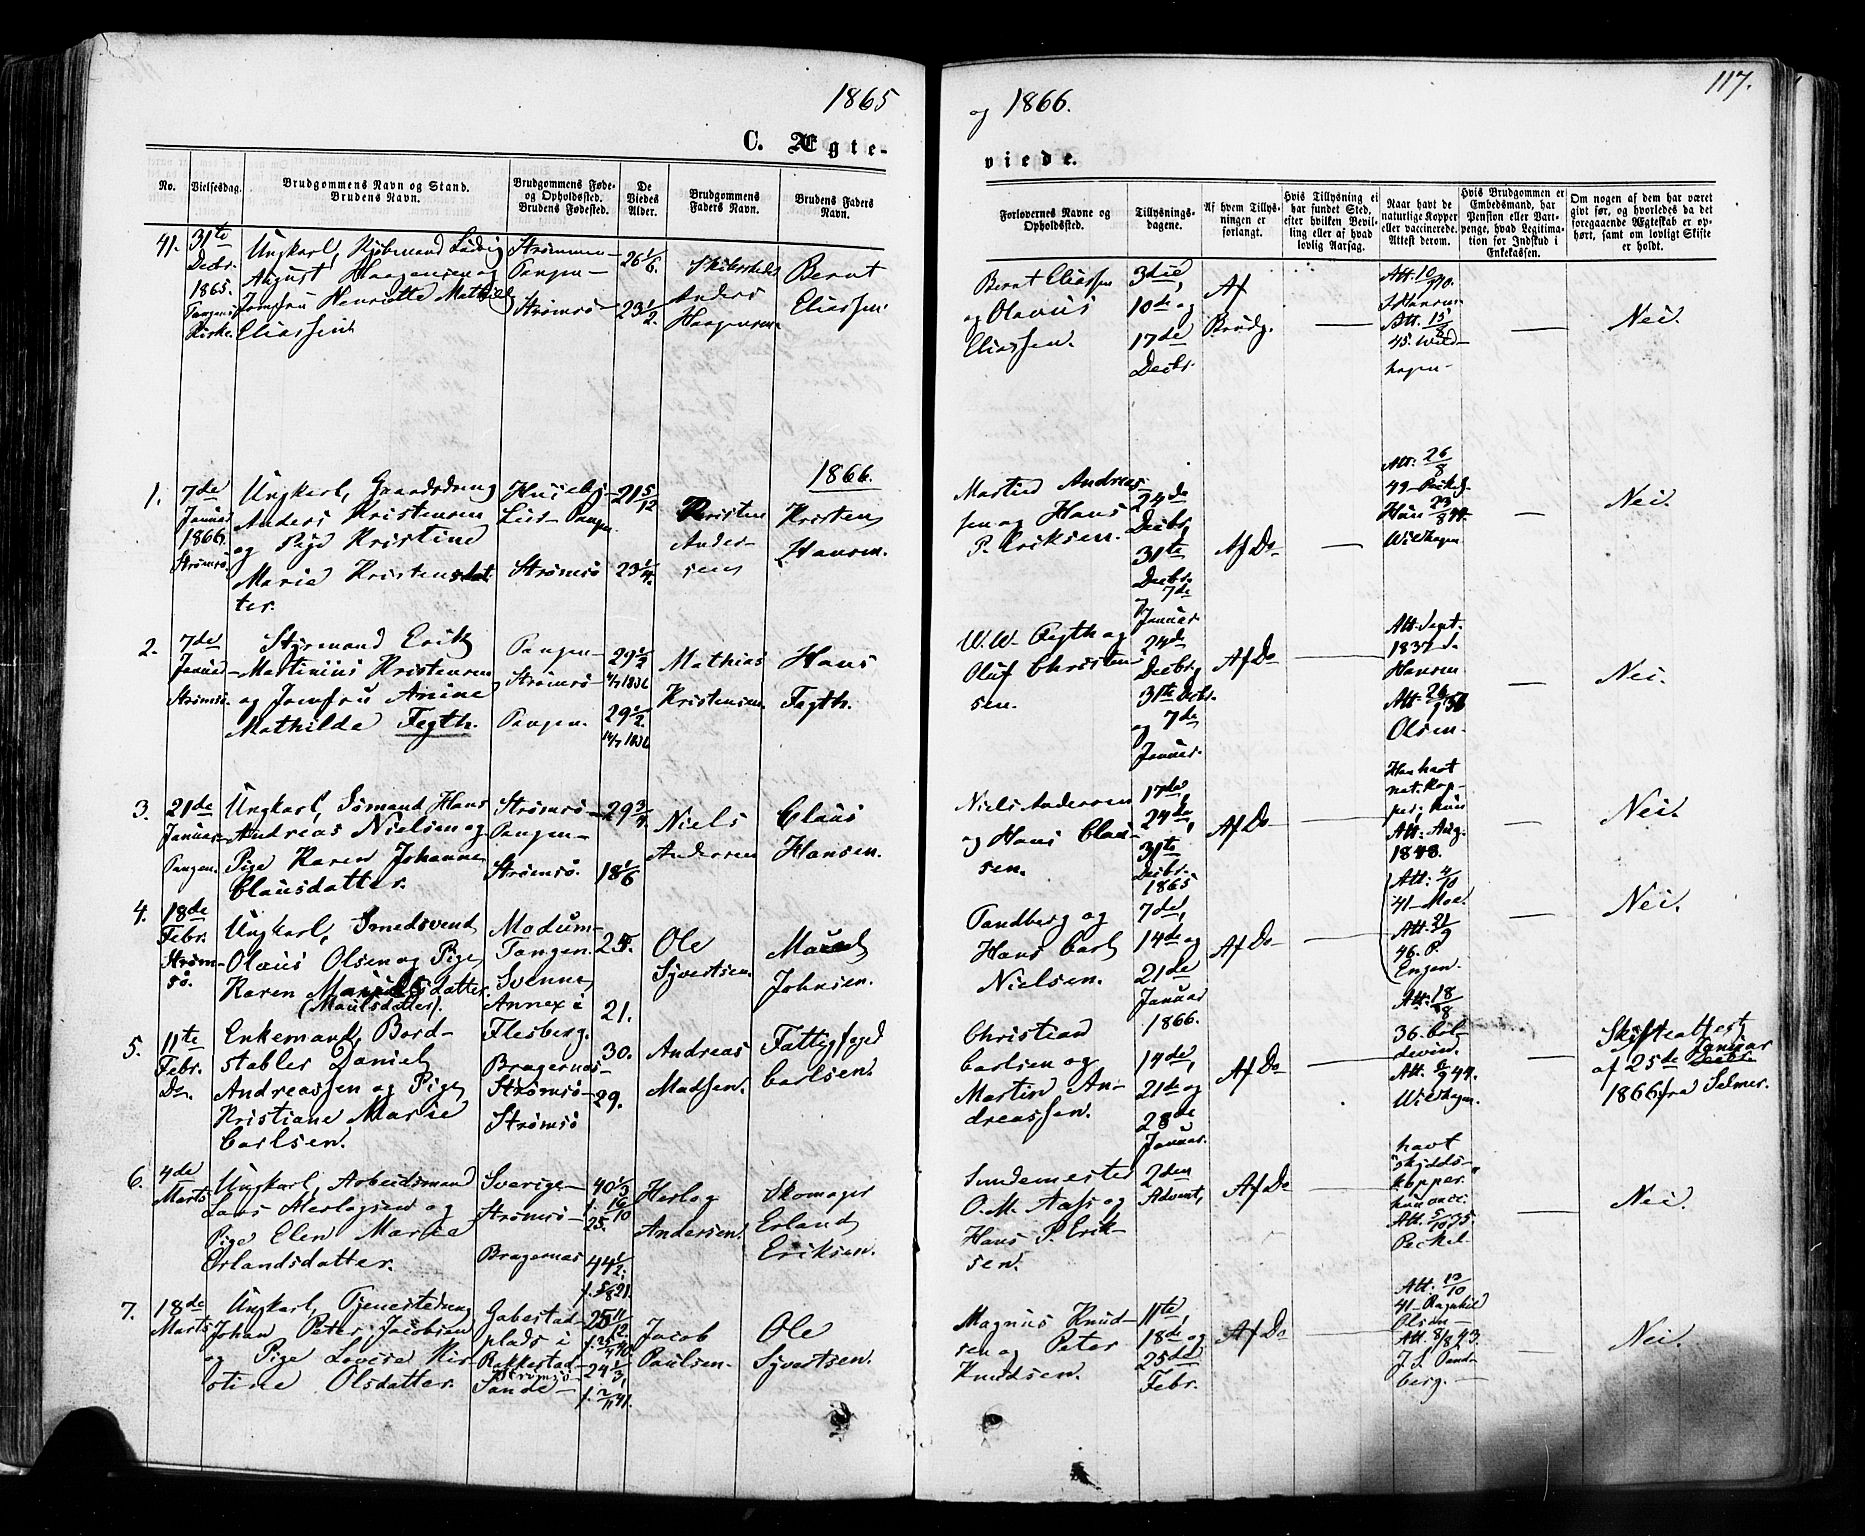 1865
og 1866.
117.
C. Ægte-
viede.
No.
Vielsesdag.
Brudgommens Navn og Stand.
Brudens Navn.
Brudgommens Føde-
og Opholdssted.
Brudens Fødested.
De
Viedes
Alder.
Brudgommens
Faders Navn.
Brudens Faders
Navn.
Forlovernes Navne og
Opholdssted.
Tillysnings-
dagene.
Af hvem Tillys-
ningen er
forlangt.
Hvis Tillysning ei
har fundet Sted,
efter hvilken Bevil-
ling eller af hvad
lovlig Aarsag.
Naar havt de
naturlige Kopper
eller vaccinerede.
Attest derom.
Hvis Brudgommen er
Embedsmand, har
Pension eller Vart-
penge, hvad Legitima-
tion for Indskud i
Enkekassen.
Om nogen af dem har været
givt før, og hvorledes da det
foregaaende Ægteskab er op-
hørt, samt om lovligt Skifte
er holdt.
41.
31te
Decbr.
1865.
Tangens
Kirke.
Ungkarl, Kjøbmand Ludvig
August Haagensen og
Jomfru Henriette Mathilde
Eliassen
Strømmen
Tangen-
Strømsø-
26 1/6
23 1/2.
Anders
Haagensen
Bernt
Eliassen
Bernt Eliassen
og Olavus
Eliassen.
3die,
10de og
17de
Decbr.
Af
Brudg.
Att. 10/9
Att. 15/8
45. Wild-
hagen-
Nei.
1866.
1.
7de
Januar
1866
Strømsø.
Ungkarl, Gaardsdreng
Anders Kristensen
og Pige Kristine
Marie Kristensdat
ter.
Huseby
Lier- Tangen.
Strømsø
21 5/12
23 1/4.
Kristen
Ander-
sen
Kristen
Hansen.
Martin Andreas-
sen og Hans
P. Eriksen.
24de
Decbr.
31te
Decbr.
og 7de
Januar.
Af Do
Att. 26/8
49-
Hun 23/8 44.
Wildhagen
Nei.
2.
7de
Januar
Strømsø.
Styrmand Erik
Martinius Kristensen
og Jomfru Anine
Mathilde Fegth.
Tangen-
Strømsø-
Tangen.
29 1/2
29 1/2.
Mathias
Kristensen
Hans
Fegth.
W. W. Fegth og
Oluf Christen-
sen.
24de
Decbr.
31te Decbr.
og 7de
Januar.
Af Do
Att. Sept.
1837
Hansen
Att. 26/9
Olsen.
Nei.
3.
21de
Januar
Tangen.
Ungkarl, Sømand Hans
Andreas Nielsen og
Pige Karen Johanne
Clausdatter.
Strømsø-
Tangen-
Strømsø.
29 3/4
18 1/6
Niels
Andersen
Claus
Hansen.
Niels Andersen
og Hans Clau-
sen.
17de,
24de,
31te
Decbr.
1865
Af Do
Han havt
nat. Kop-
per; hun
Att. Aug.
1848.
Nei.
4.
18de
Febr.
Strøm-
sø.
Ungkarl, Smedsvend
Olaus Olsen og Pige
Karen
(Maulsdatter).
Modum-
Tangen.
Svenne
Annex i
Flesberg.
25.
21.
Ole
Syvertsen.
Johnsen.
Tandberg og
Hans Carl
Nielsen.
7de,
14de og
21de
Januar
1866.
Af Do
Att. 4/10
41- Moe.
Att. 21/9
46. P.
Engen.
Nei.
5.
11te
Febr.
Do.
Enkemand, Bord-
stabler Daniel
Andreassen og Pige
Kristiane Marie
Carlsen.
Bragernæs-
Strømsø-
Strømsø
30.
29.
Andreas
Madsen.
Fattigfoged
Carlsen.
Christian
Carlsen og
Martin An-
dreassen.
14de,
21de og
28de
Januar.
Af Do
Att. 18/8
36.
Att. 2/9 44.
Wildhagen.
Skifteattest
af 25de Januar
1866 fra Selmer.
6.
4de
Marts
Ungkarl, Arbeidsmand
Lars Herlogsen og
Pige Elen Marie
Erlandsdatter.
Sverige-
Strømsø-
Bragernæs
40 1/3
f. 16/10
25.
44 1/2.
f. 5/8 21.
Herlog
Andersen.
Skomager
Erland
Eriksen.
O. M. Aass og
Hans P. Erik-
sen.
2den
Advent,
Af Do
havt
"skydds-
kopper"
hun vacc.
Att. 5/10 25
Peckel
Nei.
7.
18de
Marts
Ungkarl, Tjenestedreng
Johan Peter Jacobsen
og Pige Lovise Kir-
stine Olsdatter.
Gabestad-
plads i
Rakkestad-
Strømsø-
Sande-
25 11/12
24 1/3,
f. 2/11 41.
Jacob
Paulsen-
Ole
Syvertsen.
Magnus Knud-
sen og Peter
Knudsen.
11te,
18de og
25de
Febr.
Af Do
Att. 13/10
41- Ragnhild
Olsen-
Att. 8/8 43.
J. S. Tand-
berg.
Nei.